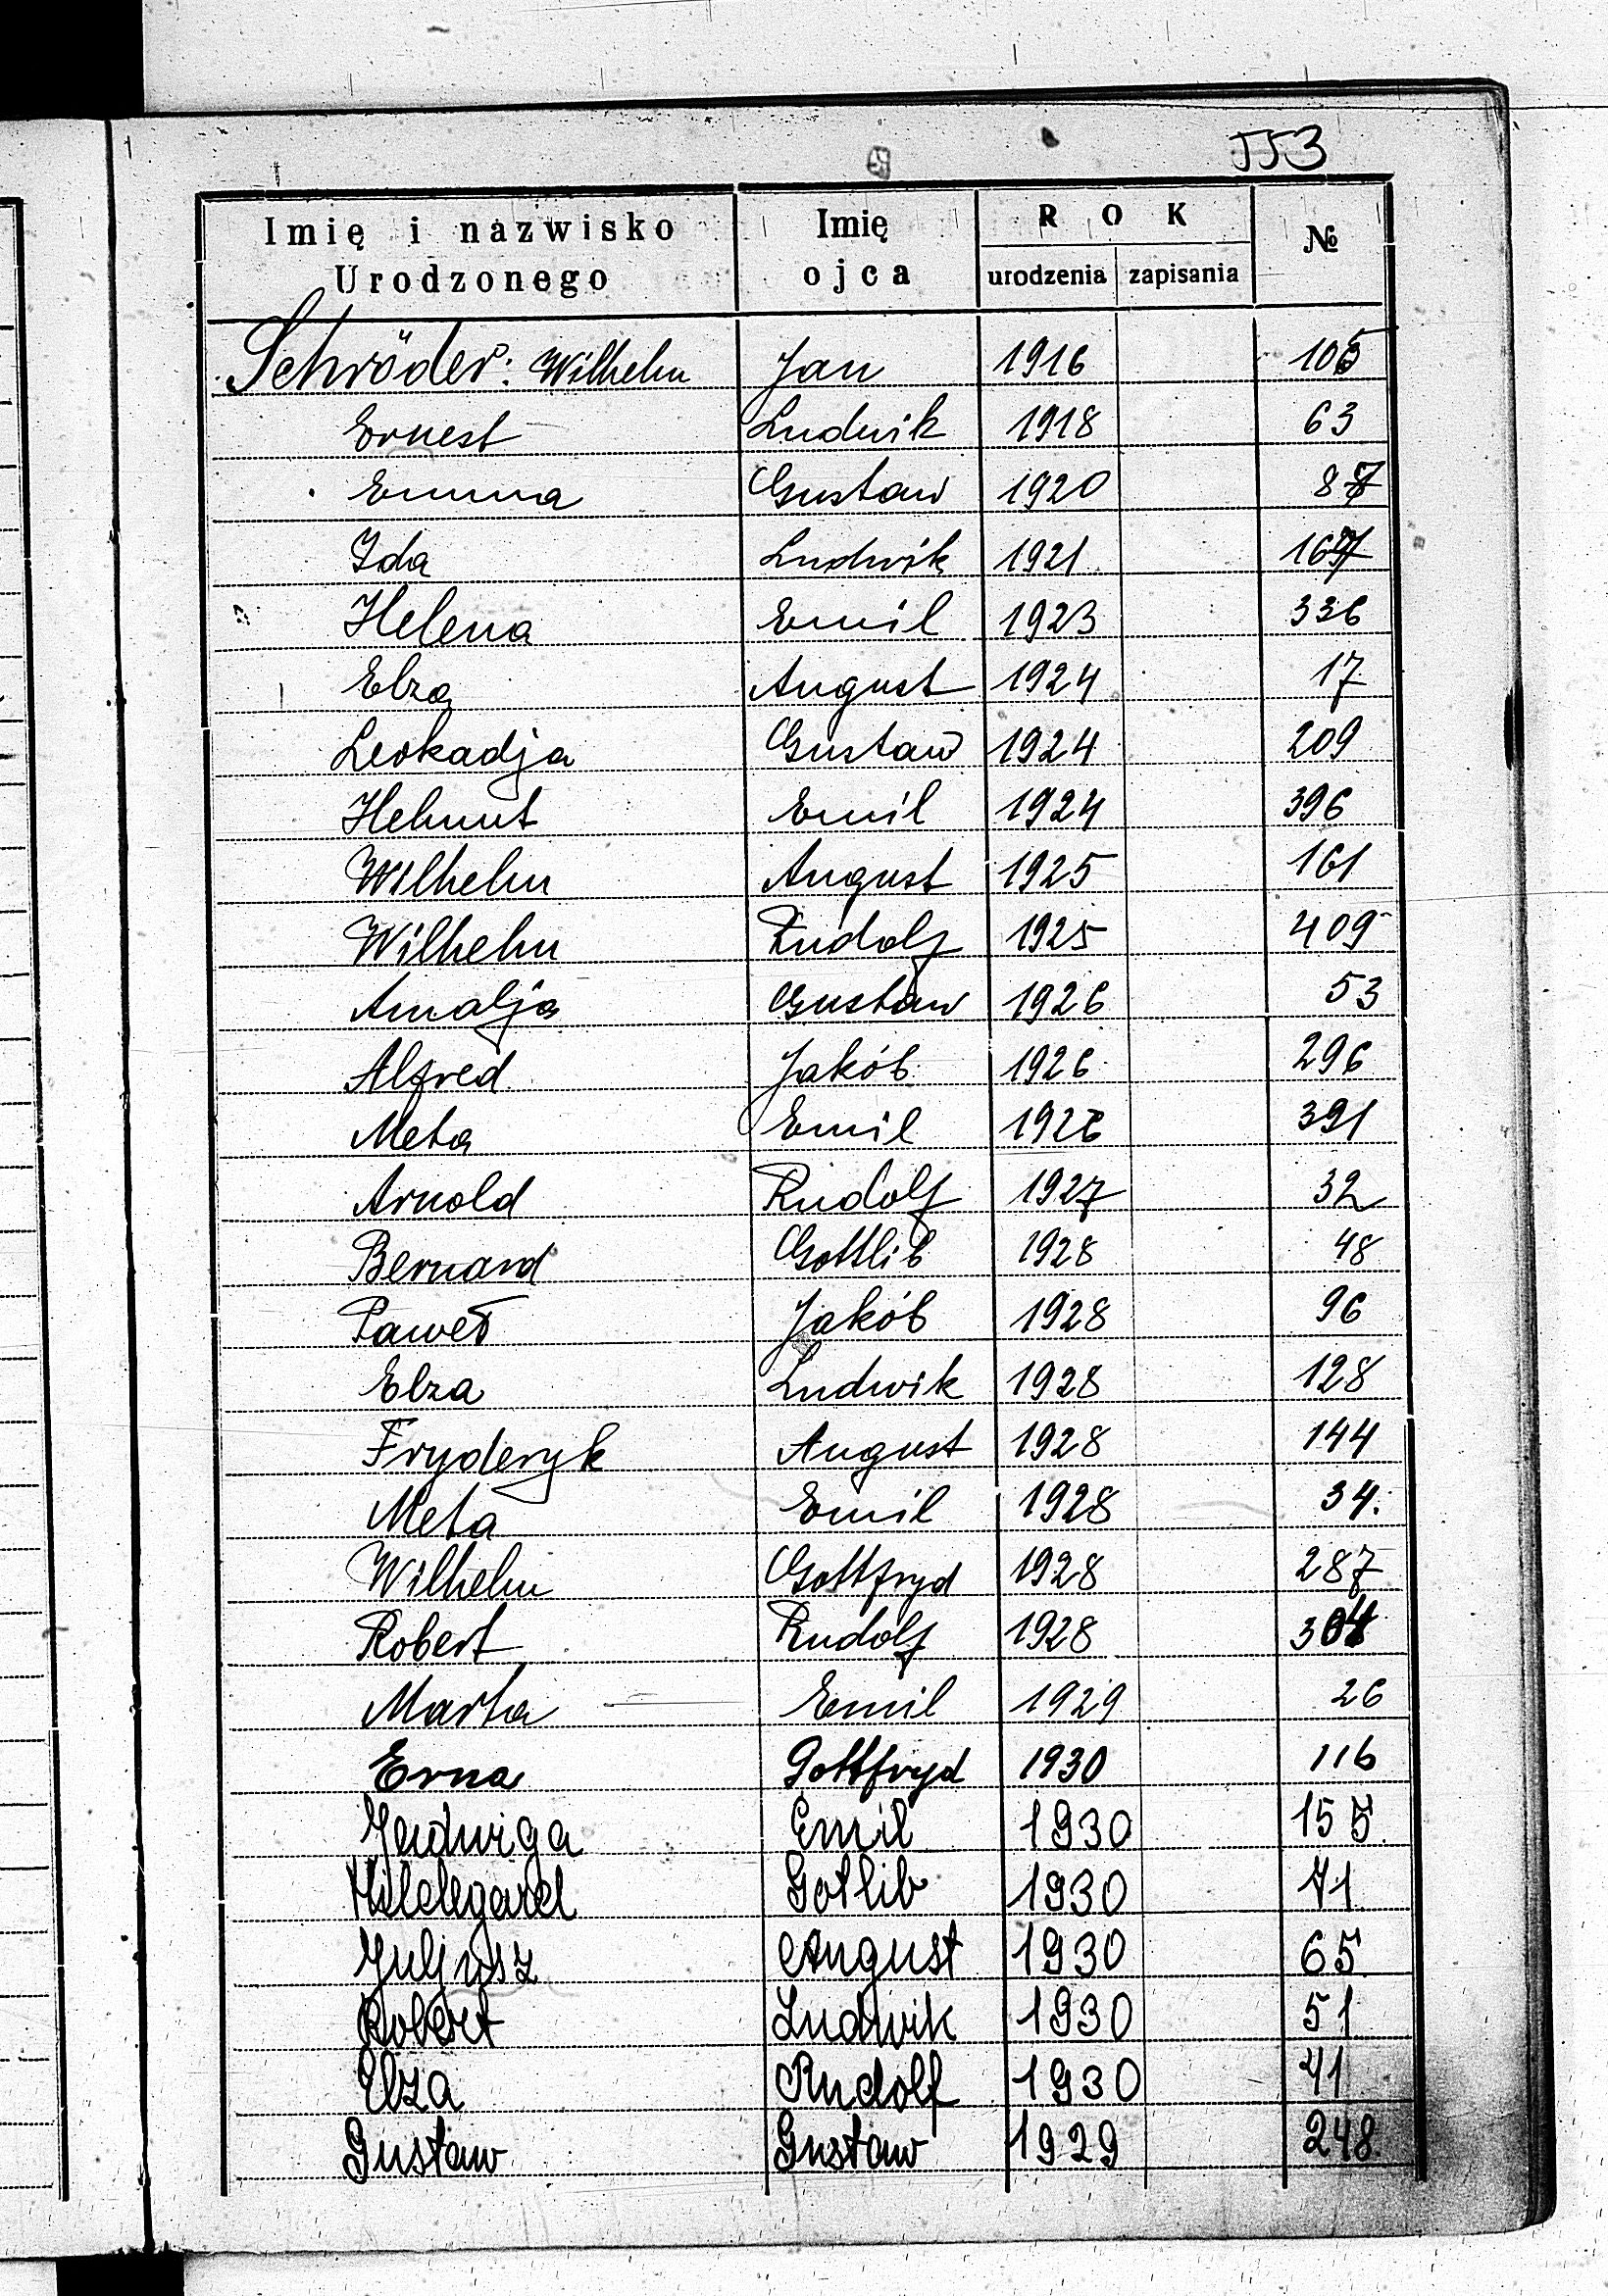 553
Imię i nazwisko Urodzonego Imię ojca ROK urodzenia zapisania №
Schröder: Wilhelm Jan 1916 105
Ernest Ludwik 1918 63
Emma Gustaw 1920 87
Ida Ludwik 1921 167
Helena Emil 1923 336
Elza August 1924 17
Leokadja Gustaw 1924 209
Helmut Emil 1924 396
Wilhelm August 1925 161
Wilhelm Rudolf 1925 409
Amalja Gustaw 1926 53
Alfred Jakób 1926 296
Meta Emil 1926 391
Arnold Rudolf 1927 32
Bernard Gottlib 1928 48
Paweł Jakób 1928 96
Elza Ludwik 1928 128
Fryderyk August 1928 144
Meta Emil 1928 34.
Wilhelm Gottfryd 1928 287
Robert Rudolf 1928
Marta Emil 1929 26
Erna Gottfryd 1930 116
Jadwiga Emil 1930 155
Hildegard Gotlib 1930 71
Juljusz August 1930 65
Robert Ludwik 1930 51
Elza Rudolf 1930 41
Gustaw Gustaw 1929 248